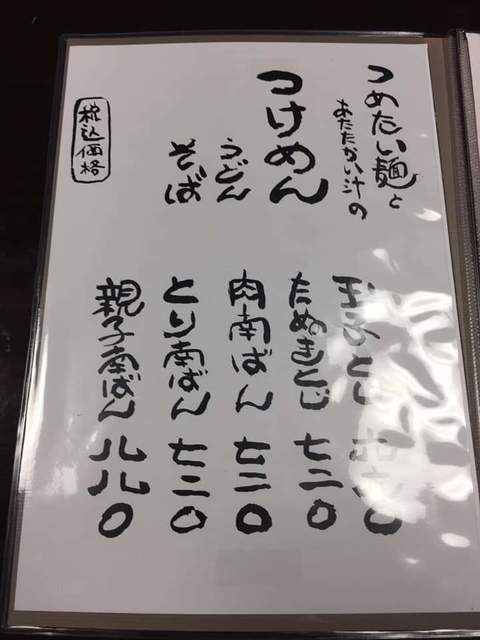 つめたい麺と
あたたかい汁の
つけめん
うどん
そば
税込価格
玉子とじ
たぬきとじ 七二〇
肉南ばん 七二〇
とり南ばん 七二〇
親子南ばん 八八〇